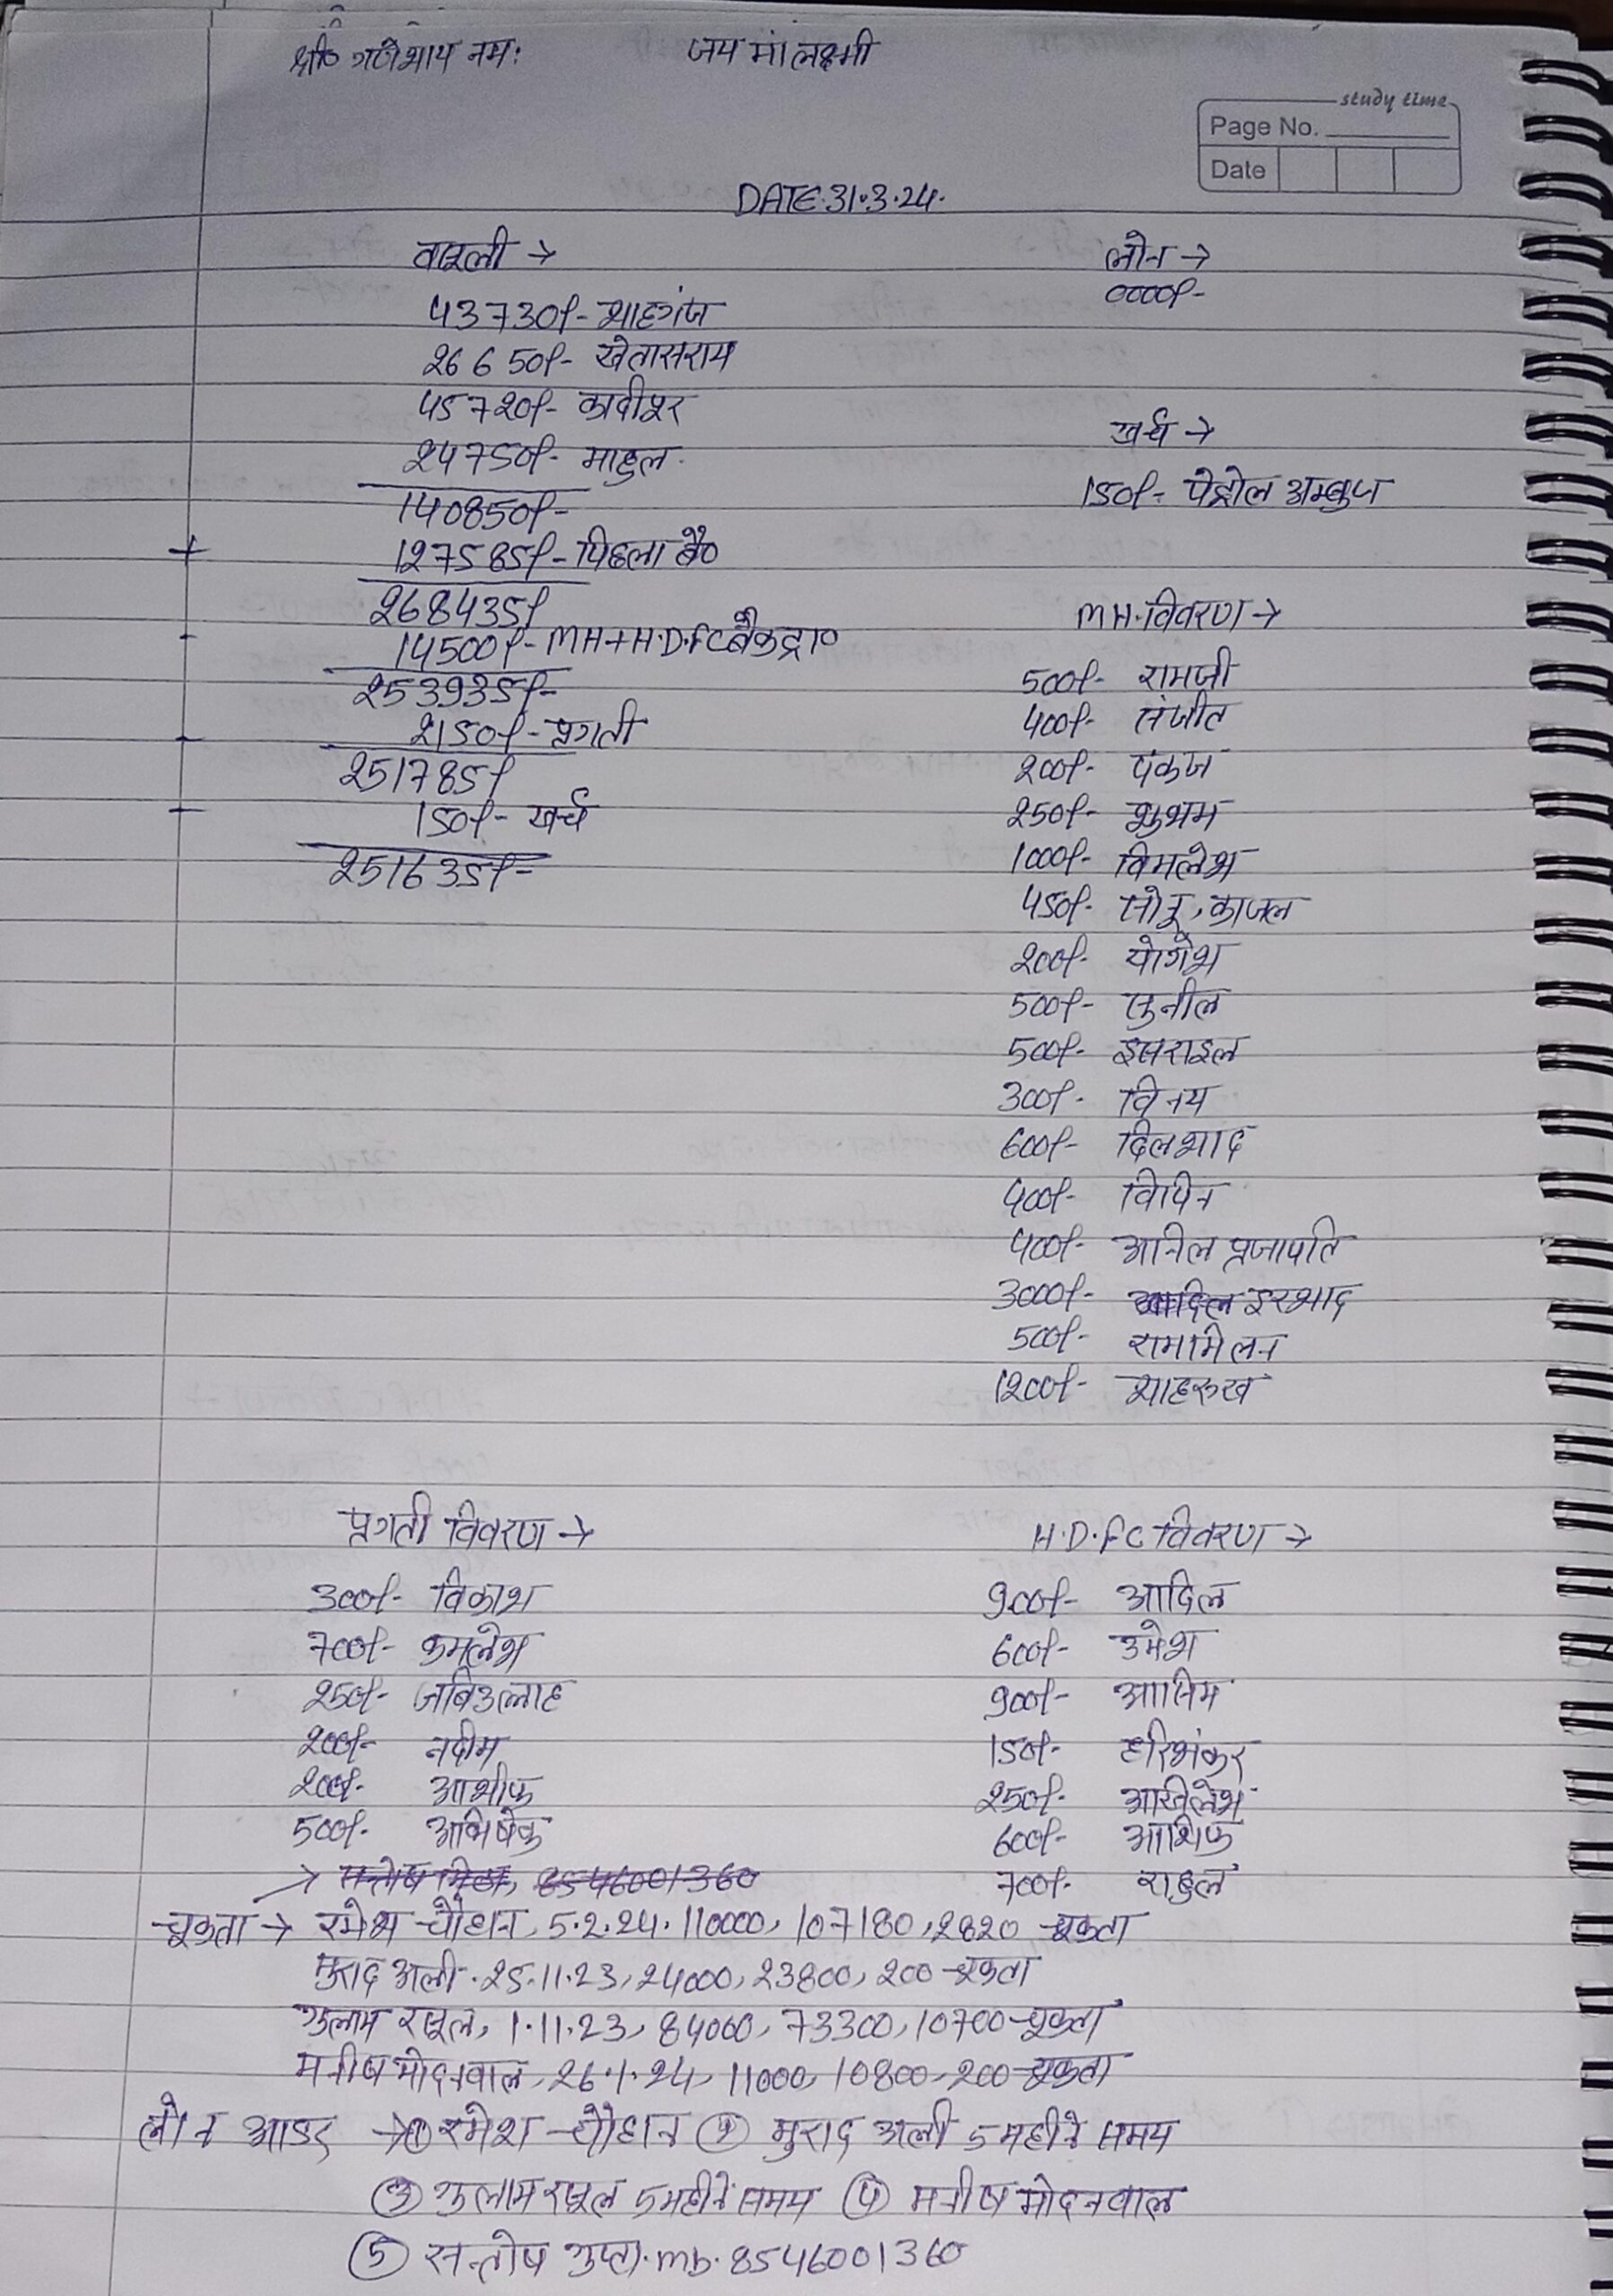 श्री गणेशाय नमः जय मां लक्ष्मी
study time
Page No.
Date
DATE:31.3.24.
वसूली →
43730/- शाहगंज
26650/- खेतासराय
45720/- कादीपुर
24750/- माहुल
140850/-
+ 127585/- पिछला बै०
268435/
- 14500/- MH+H.D.FC बैंक ट्रा०
253935/-
- 2150/- प्रगती
251785/
- 150/- खर्च
251635/-
लोन →
0000/-
खर्च →
150/- पेट्रोल अम्बुज
MH.विवरण →
500/- रामजी
400/- संजीत
200/- पंकज
250/- शुभम
1000/- विमलेश
450/- सोनू, काजल
200/- योगेश
500/- सुनील
500/- इसराइल
300/- विनय
600/- दिलशाद
400/- विपिन
400/- अनिल प्रजापति
3000/- इरशाद
500/- राममिलन
1200/- शाहरुख
प्रगती विवरण →
300/- विकाश
700/- कमलेश
250/- जबिउल्लाह
200/- नदीम
200/- आशीफ
500/- अभिषेक
H.D.FC विवरण →
900/- आदिल
600/- उमेश
900/- आसिम
150/- हरिशंकर
250/- अखिलेश
600/- आशिफ
700/- राहुल
→ सन्तोष 8546001360
चूकता → रमेश चौहान, 5.2.24. 110000, 107180, 2820 चूकता
मुराद अली. 25.11.23, 24000, 23800, 200 चूकता
गुलाम रसूल, 1.11.23, 84000, 73300, 10700 चूकता
मनीष मोदनवाल, 26.1.24, 11000, 10800, 200 चूकता
लोन आडर → ① रमेश चौहान ② मुराद अली 5 महीने समय
③ गुलाम रसूल 5 महीने समय ④ मनीष मोदनवाल
⑤ सन्तोष गुप्ता. mb. 8546001360